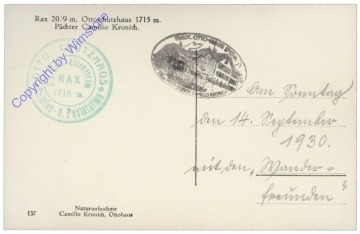 Rax 2009 m, Ottoschutzhaus 1715 m.
Pächter Camillo Kronich.
RAX
1715 m.
CAMILLO KRONICH
Copyright by Wimsincus
Am Sonntag
den 14. September
1930.
mit den „Wander=
freunden"
Naturaufnahme
137 Camillo Kronich, Ottohaus